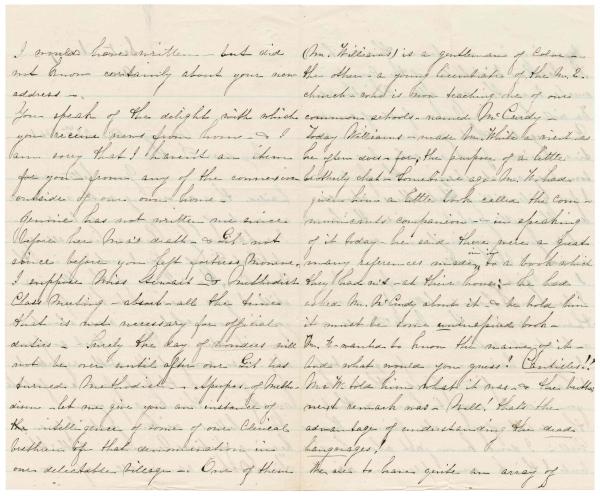 I would have written - but did
not know certainly about your new
address -.
You speak of the delight with which
you receive news from home - & I
am sorry that I haven't an item
for you - from any of the connexion
outside of our own home -
Bennie has not written me since
before her Ma's death - & Gil not
since before you left Fortress Monroe.
I suppose Miss Stewart - & Methodist
Class Meeting - absorb all the time
that is not necessary for official
duties - Surely the day of wonders will
not be over until after one Gil has
turned Methodist - Apropos of Metho-
dism - let me give you an instance of
the intelligence of some of our Clerical
brethren of that denomination in
our delectable village -. One of them
(Mr. Williams) is a gentleman of Color -
the other - a young licentiate of the M. E.
church - who is now teaching one of our
common schools - named McCurdy -
Today Williams - made Mr. White a visit as
he often does - for, the purpose of a little
brotherly chat - Sometime ago Mr. W. had
given him a little book called the com-
municants companion - in speaking
of it today - he said there were a great
many references made in it to a book which
they had n't - at their house: - he had
asked Mr. McCurdy about it - & he told him
it must be some uninspired book -
Mr. W. wanted to know the name of it -
And what would you guess! Canticles!!
Mr. W. told him what it was - & the brothers
next remark was - Well! thats the
advantage of understanding the dead
languages!
We are to have quite an array of